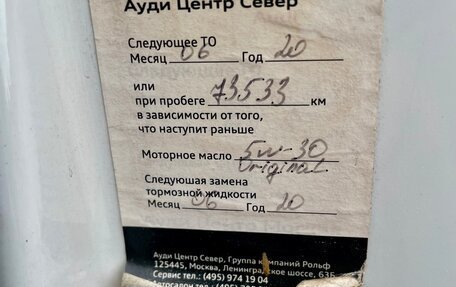 Ауди Центр Север
Следующее ТО
Месяц 06 Год 20
или
при пробеге 73533 км
в зависимости от того,
что наступит раньше
Моторное масло 5w-30
Original
Следующая замена
тормозной жидкости
Месяц 06 Год 20
Ауди Центр Север, Группа компаний Рольф
125445, Москва, Ленинградское шоссе, 63Б
Сервис тел.: (495) 974 19 04